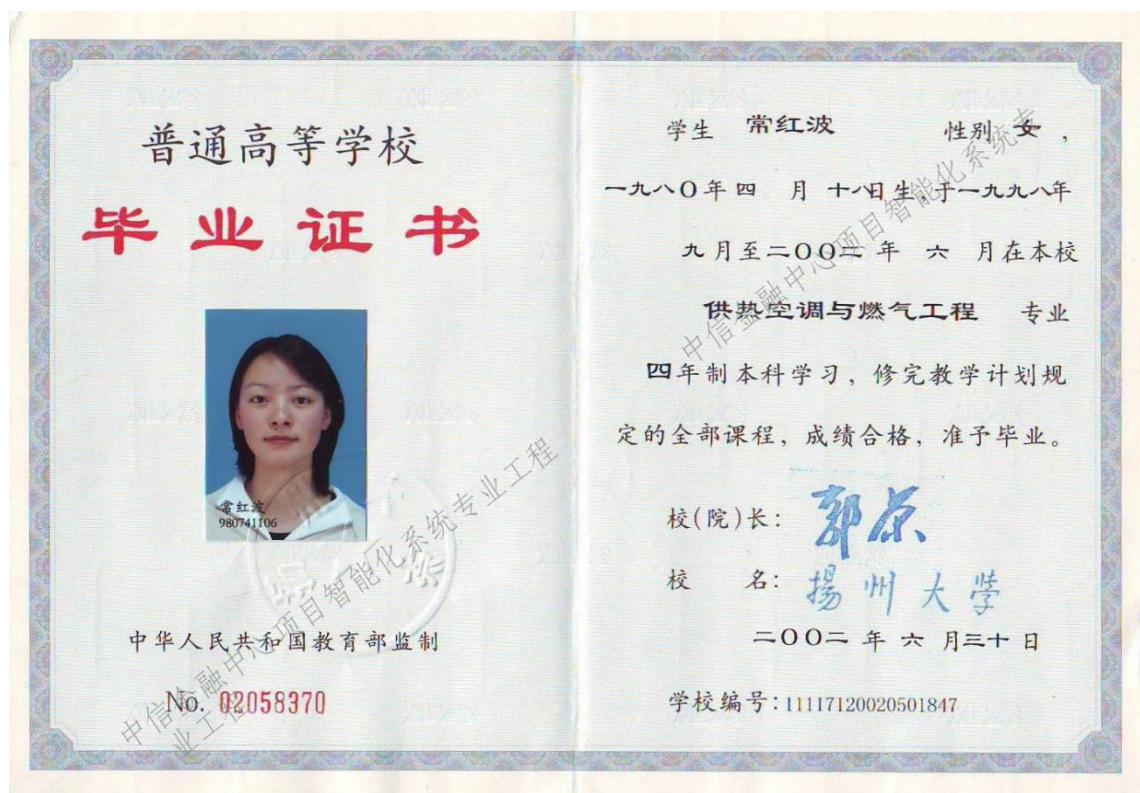 普通高等学校
毕业证书
常红波
980741106
中华人民共和国教育部监制
No. 02058370
学生 常红波 性别 女,
一九八〇年四 月 十八日生,于一九九八年
九月至二〇〇二 年 六 月在本校
供热空调与燃气工程 专业
四年制本科学习,修完教学计划规
定的全部课程,成绩合格,准予毕业。
校(院)长: 郭荣
校 名: 揚州大学
二〇〇二 年 六 月三十日
学校编号:111171200205001847
中信金融中心项目智能化系统专业工程
中信金融中心项目智能化系统专